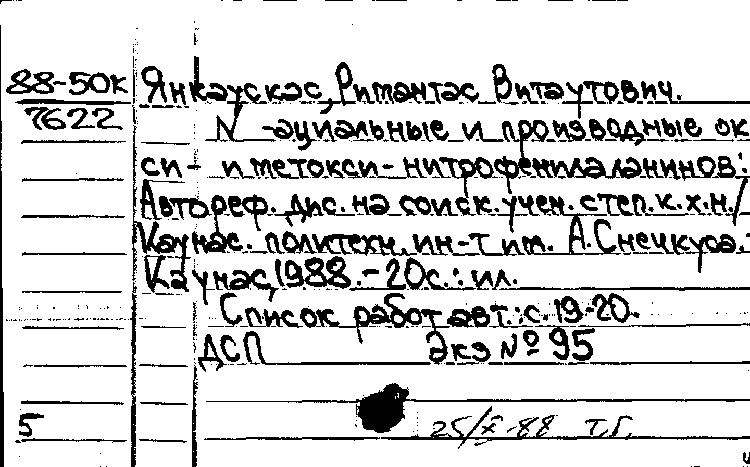 88-50К Янкаускас, Римантас Витаутович.
7622 N -ациальные и производные ок
си- и метокси-нитрофенилаланинов:
Автореф. дис. на соиск. учен. степ. к.х.н./
Каунас. политехн. ин-т им. А.Снечкуса.-
Каунас, 1988.-20с.: ил.
Список работ авт.: с.19-20.
ДСП Экз №95
5 25/X-88 Т.Г.